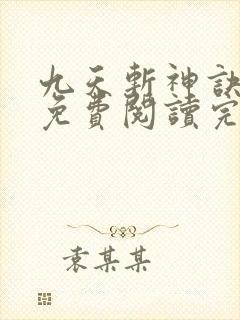 九天斬神訣
免費閱讀完
袁某某